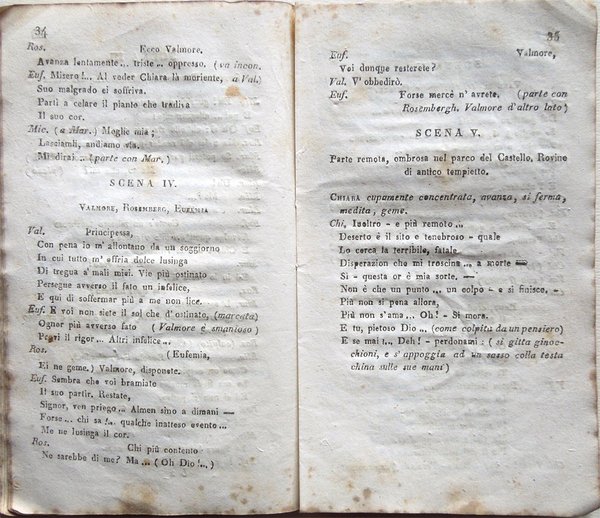 34
Ros. Ecco Valmore.
Avanza lentamente... triste... oppresso. (va incon.
Euf. Misero!... Al veder Chiara là moriente, a Val.)
Suo malgrado ei soffriva.
Partì a celare il pianto che tradiva
Il suo cor.
Mic. (a Mar.) Moglie mia;
Lasciamli, andiamo via.
Mi dirai... (parte con Mar.)
SCENA IV.
VALMORE, ROSEMBERG, EUFEMIA
Val. Principessa,
Con pena io m' allontano da un soggiorno
In cui tutto m' offria dolce lusinga
Di tregua a' mali miei. Vie più ostinato
Persegue avverso il fato un infelice,
E qui di soffermar più a me non lice.
Euf. E voi non siete il sol che d'ostinato, (marcata)
Ognor più avverso fato (Valmore è smanioso)
Provi il rigor... Altri infelice...
Ros. (Eufemia,
Ei ne geme.) Valmore, disponete.
Euf. Sembra che voi bramiate
Il suo partir. Restate,
Signor, ven priego... Almen sino a dimani —
Forse... chi sa!.. qualche inatteso evento...
Me ne lusinga il cor.
Ros. Chi più contento
Ne sarebbe di me? Ma... (Oh Dio!..)
35
Euf. Valmore,
Voi dunque resterete?
Val. V' obbedirò.
Euf. Forse mercè n' avrete. (parte con
Rosembergh. Valmore d'altro lato)
SCENA V.
Parte remota, ombrosa nel parco del Castello. Rovine
di antico tempietto.
CHIARA cupamente concentrata, avanza, si ferma,
medita, geme.
Chi. Inoltro - e più remoto...
Deserto è il sito e tenebroso - quale
Lo cerca la terribile, fatale
Disperazion che mi trascina... a morte —
Sì - questa or è mia sorte. —
Non è che un punto... un colpo - e si finisce.
Più non si pena allora,
Più non s'ama... Oh! - Si mora.
E tu, pietoso Dio... (come colpita da un pensiero)
E se mai!.. Deh! - perdonami: (si gitta ginoc-
chioni, e s' appoggia ad un sasso colla testa
china sulle sue mani)